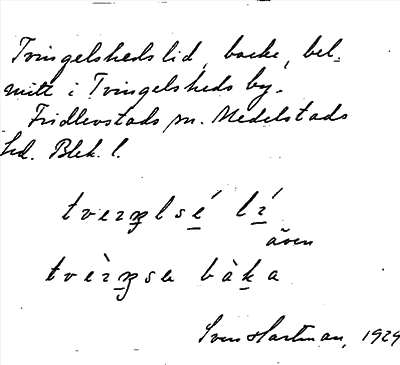 Tvingelsheds lid, backe, bel.
mitt i Tvingelsheds by.
Fridlevstads sn. Medelstads
hd. Blek. l.
tverŋelsé lí
även
tvèrŋse bàka
Sven Hartman, 1929